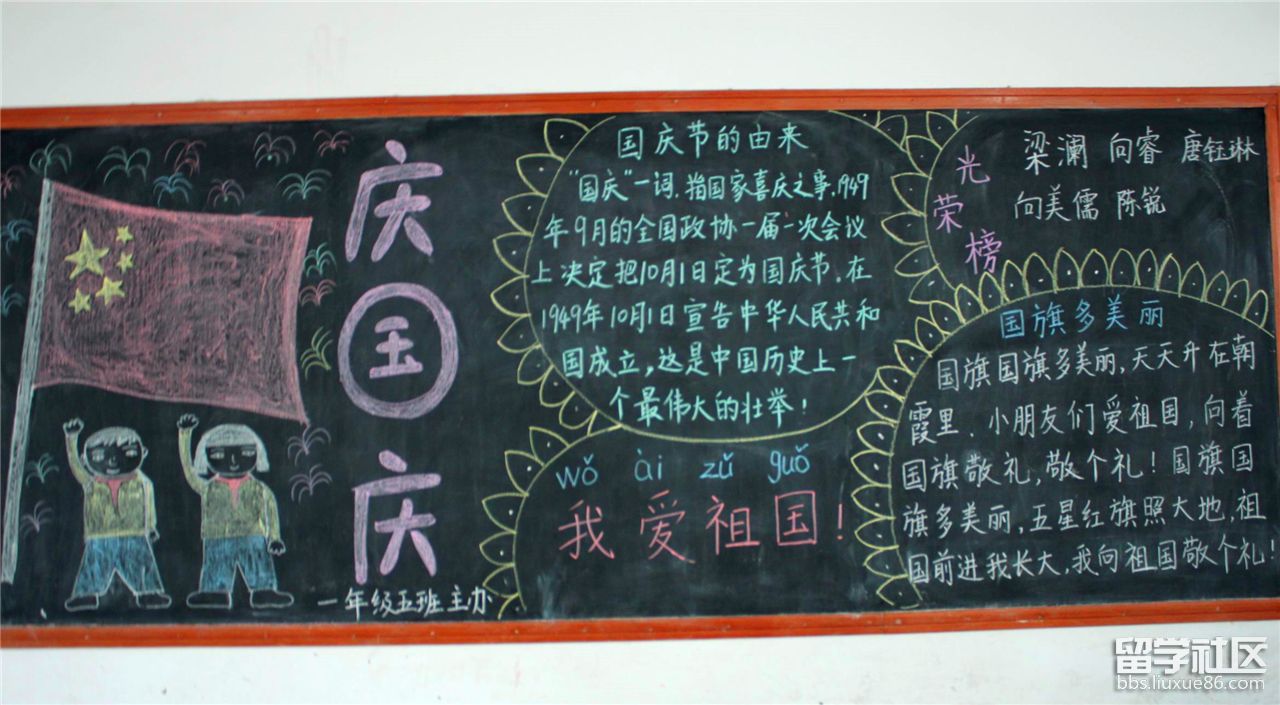 庆
国
庆
一年级五班主办
国庆节的由来
"国庆"一词,指国家喜庆之事,1949
年9月的全国政协一届一次会议
上决定把10月1日定为国庆节,在
1949年10月1日宣告中华人民共和
国成立,这是中国历史上一
个最伟大的壮举!
wǒ ài zǔ guǒ
我爱祖国!
光荣榜
梁澜 向睿 唐钰琳
向美儒 陈锐
国旗多美丽
国旗国旗多美丽,天天升在朝
霞里、小朋友们爱祖国,向着
国旗敬礼,敬个礼!国旗国
旗多美丽,五星红旗照大地,祖
国前进我长大,我向祖国敬个礼!
留学社区
bbs.liuxue86.com